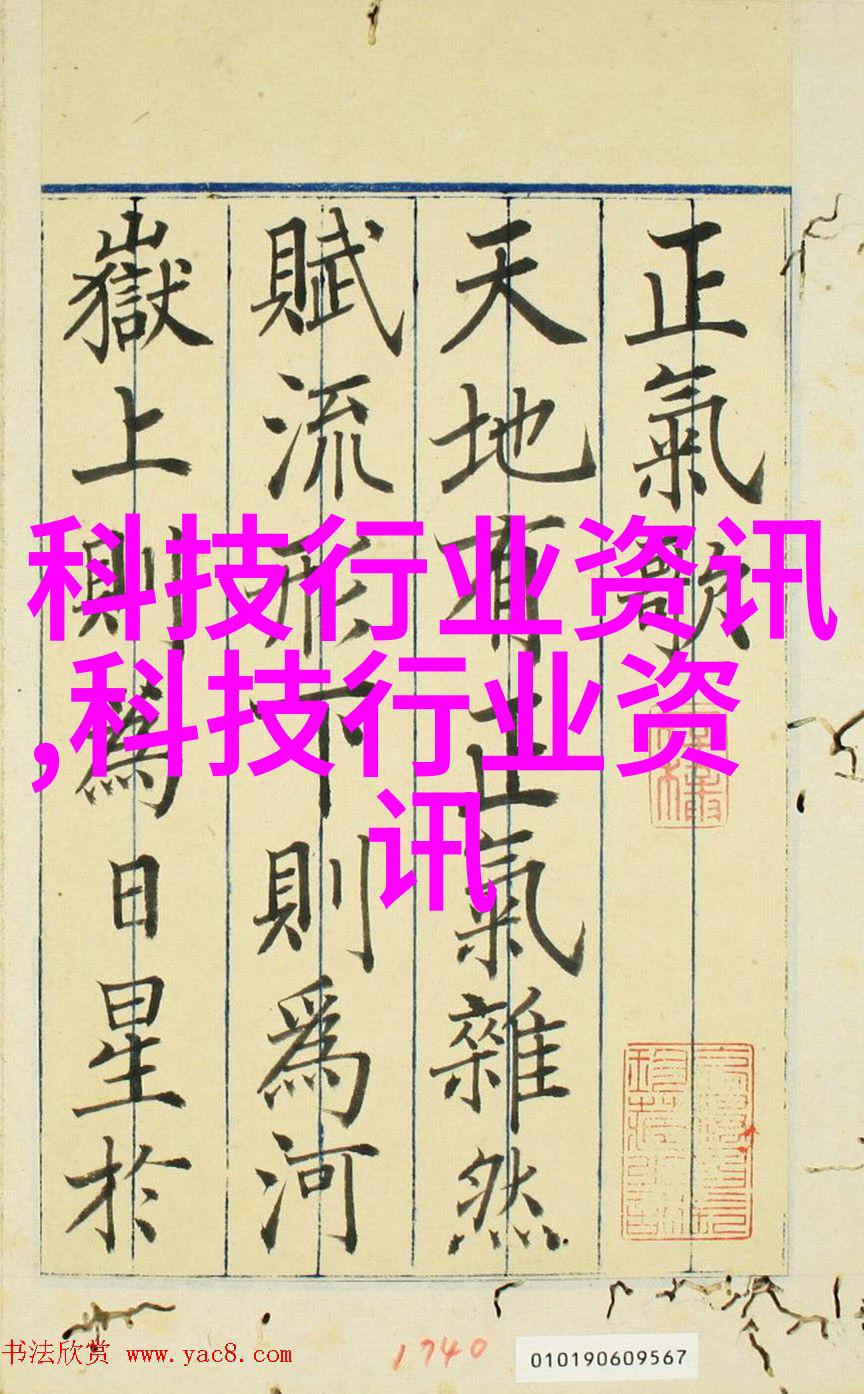 正氣歌
天地有正氣雜然
賦流形下則為河
嶽上則為日星於
科技行业资讯
,科技行业资
讯
书法欣赏 www.yac8.com
1740
010190609567